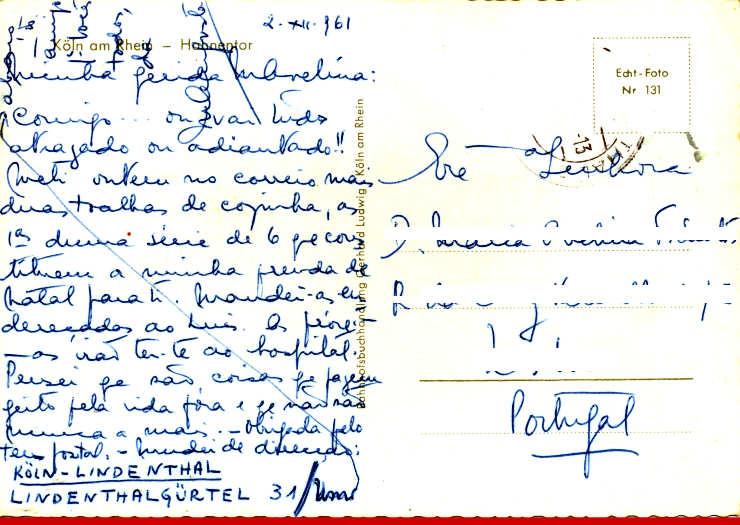 2-XII-961
Köln am Rhein – Hahnentor
Minha querida Avelina:
Comigo... ou vai tudo
atrazado ou adiantado!!
Meti ontem no correio mais
duas toalhas de cozinha, as
1as duma série de 6 qe cons
tituem a minha prenda de
Natal para ti. Mandei-as en
dereçadas ao Luis. As próxi
– as irão ter-te ao hospital.
Pensei qe são coisas qe fazem
geito pela vida fora e qe não são
nunca a mais. – Obrigada pelo
teu postal. – Mudei de direcção:
KÖLN-LINDENTHAL
LINDENTHALGÜRTEL 31/
Bahnhofsbuchhandlung Gerhard Ludwig, Köln am Rhein
Echt-Foto
Nr 131
13
Senhora
D. Maria
Portugal